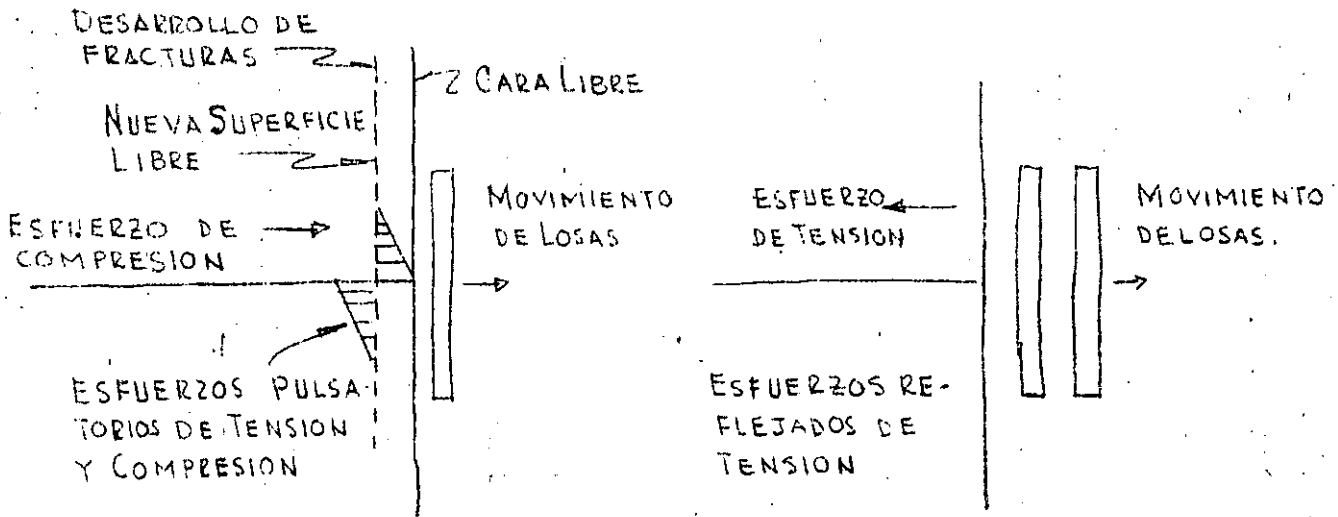 DESARROLLO DE
FRACTURAS
CARA LIBRE
NUEVA SUPERFICIE
LIBRE
ESFUERZO DE
COMPRESION
MOVIMIENTO
DE LOSAS
ESFUERZOS PULSA-
TORIOS DE TENSION
Y COMPRESION
ESFUERZO
DE TENSION
MOVIMIENTO
DE LOSAS.
ESFUERZOS RE-
FLEJADOS DE
TENSION